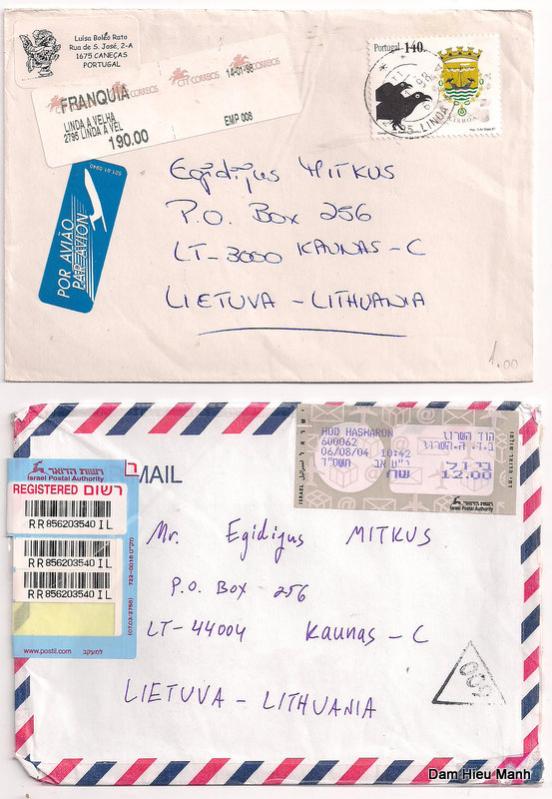 Luisa Boléo Rato
Rua de S. José, 2-A
1675 CANEÇAS
PORTUGAL
CTT CORREIOS
14-01-98
FRANQUIA
LINDA A VELHA
2795 LINDA A VEL
190.00
EMP 006
Portugal 140.
LISBOA
2795 LINDA
521 01 0940
POR AVIÃO
PAR AVION
Egidijus MITKUS
P.O. Box 256
LT-3000 KAUNAS-C
LIETUVA - LITHUANIA
1.00
MAIL
רשות הדואר
Israel Postal Authority
REGISTERED רשום
RR 856203540 IL
RR 856203540 IL
RR 856203540 IL
www.postil.com למעקב
HOD HASHARON
600062
06/08/04 10:42
הוד השרון
12.00
ישראל
ISRAEL
רשות הדואר
Israel Postal Authority
Mr. Egidijus MITKUS
P.O. Box 256
LT-44004 Kaunas - C
LIETUVA - LITHUANIA
Dam Hieu Manh